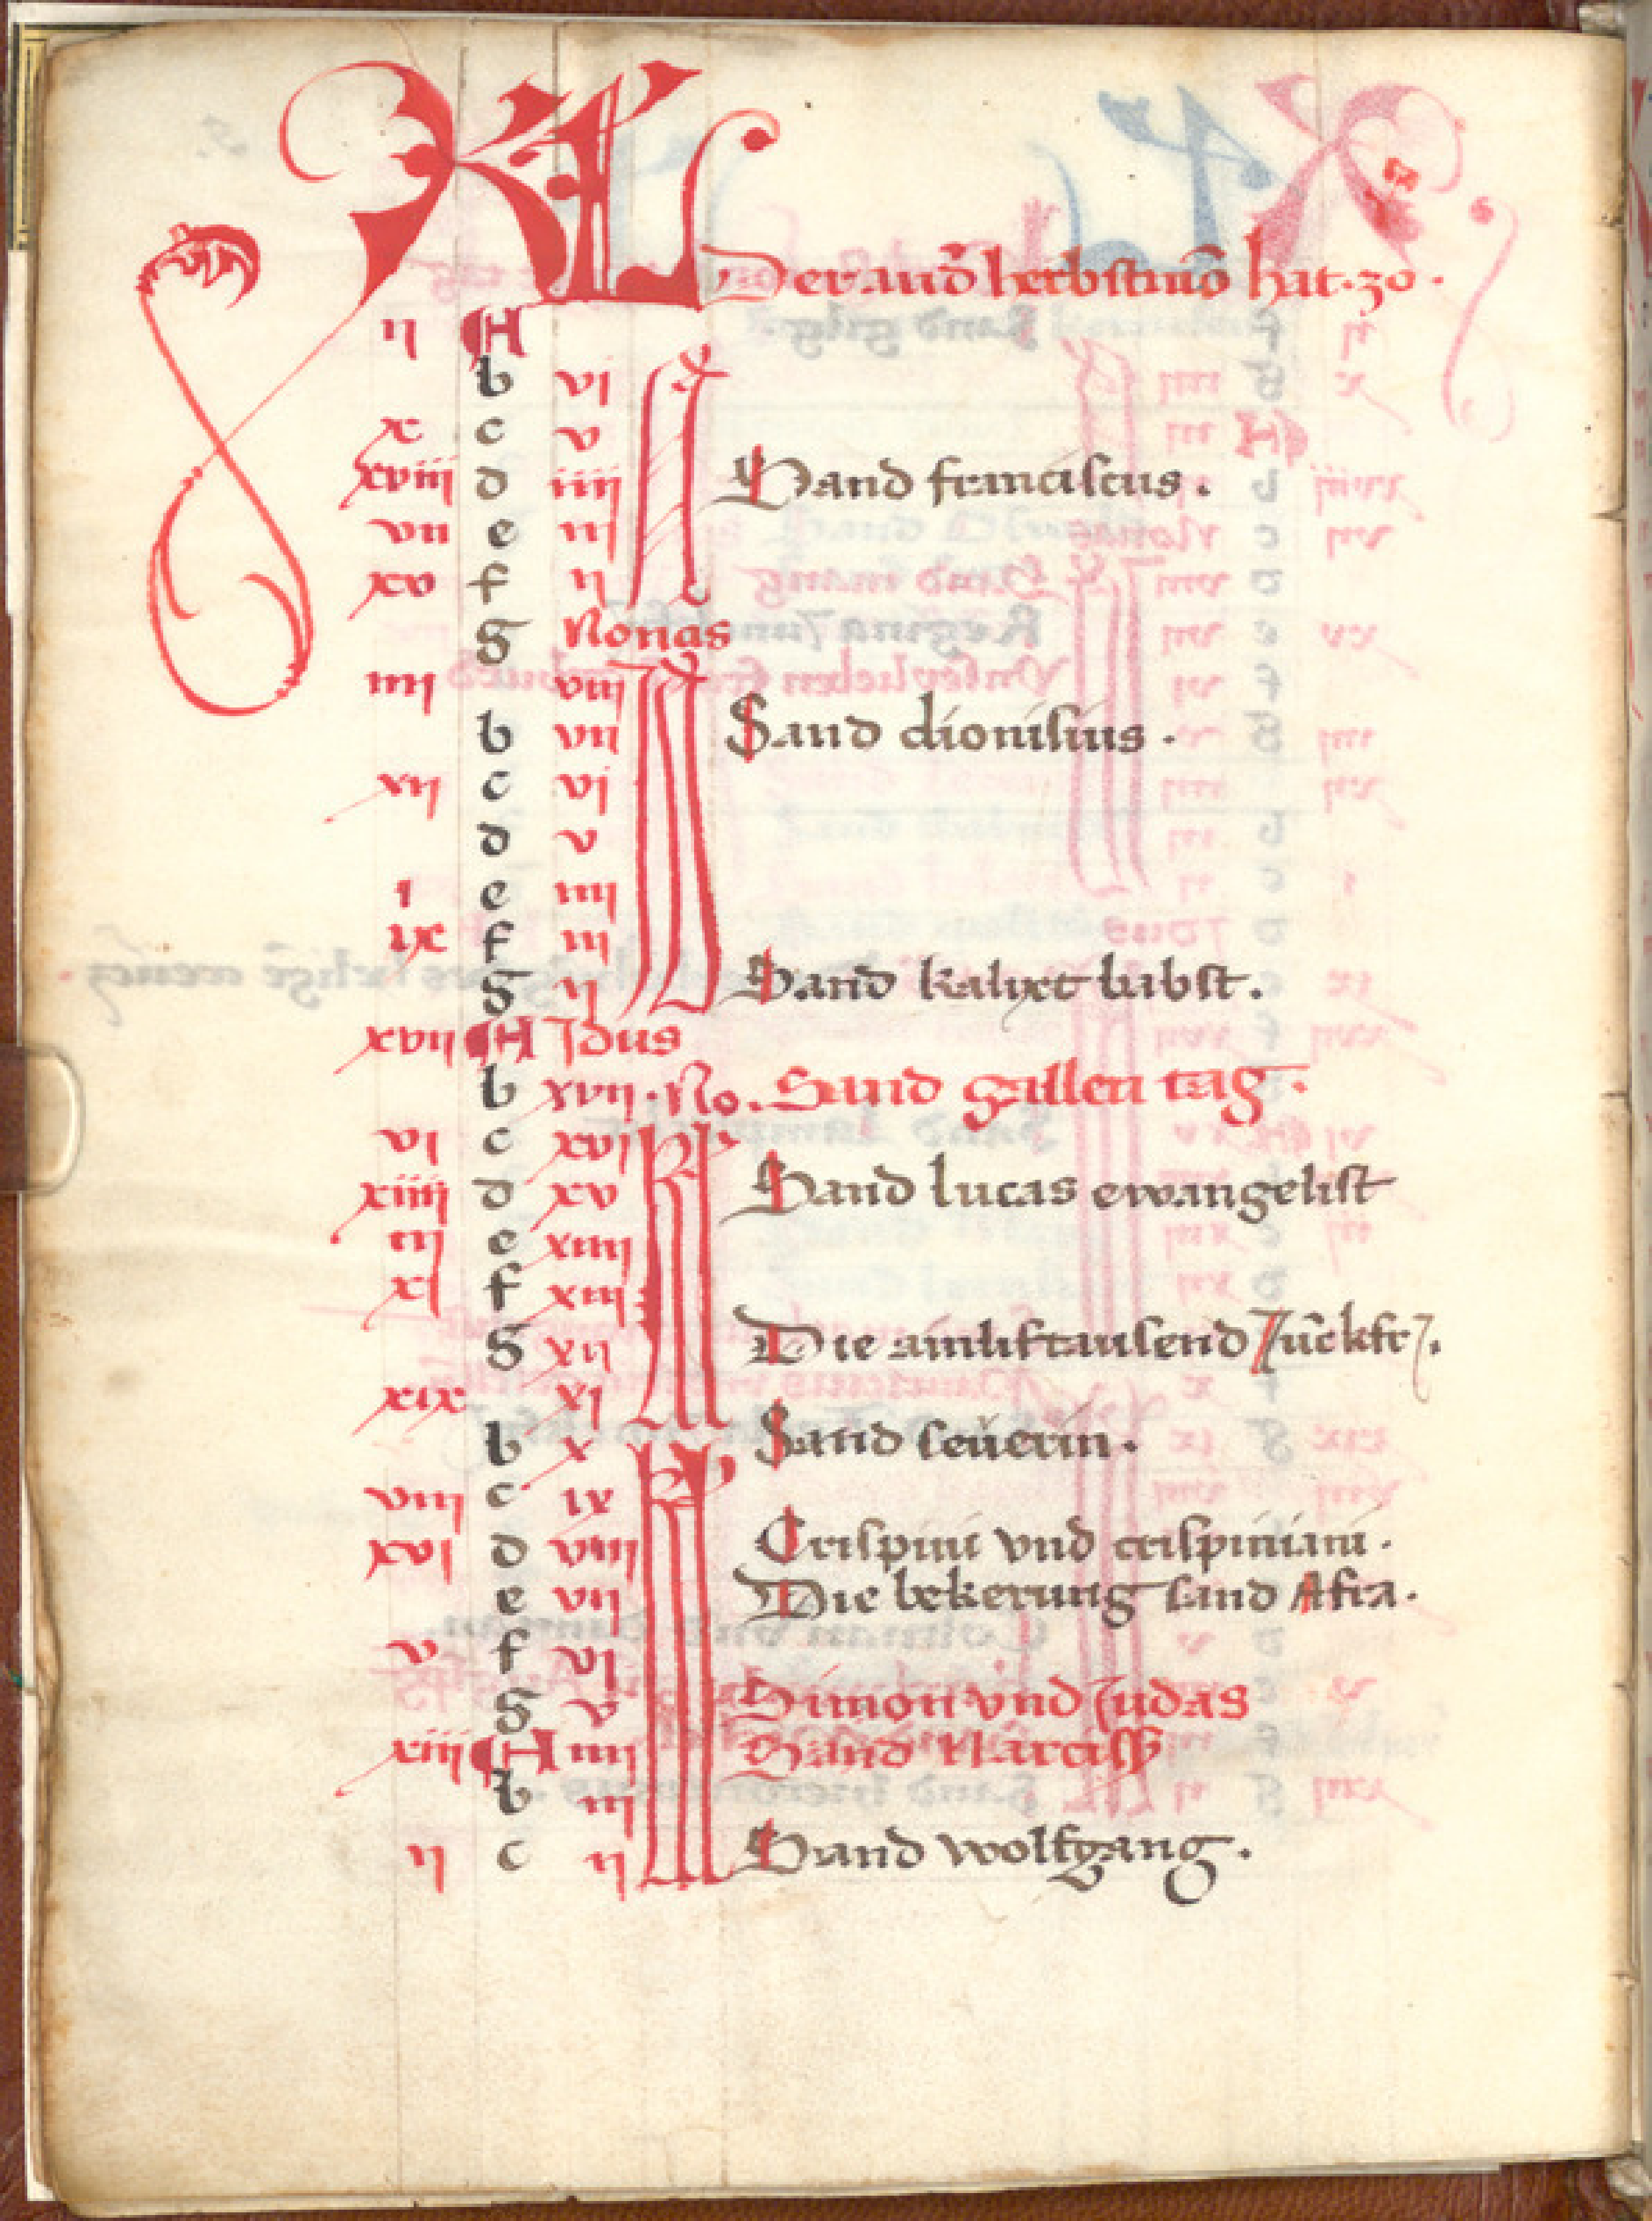 KL Der ander herbstmo hat · 30 ·
ij A
b vj
x c v
xviij d iiij Sand franciscus .
vij e iij
xv f ij
g Nonas
iiij viij
b vij Sand dionisius .
xij c vj
d v
i e iiij
ix f iij
g ij Sand kalixt babst .
xvij A Jdus
b xvij · No . Sand gallen tag .
vj c xvj kl
xiiij d xv Sand lucas ewangelist
iij e xiiij
xj f xiij
g xij Die ainliftausend Juckfr .
xix xj
b x Sand seuerin .
viij c ix kl
xvj d viij Crispini vnd crispiniani .
e vij Die bekerung sand Afra .
v f vj
g v Simon vnd Judas
xiij A iiij Sand Narciss
b iij
ij c ij Sand wolfgang .